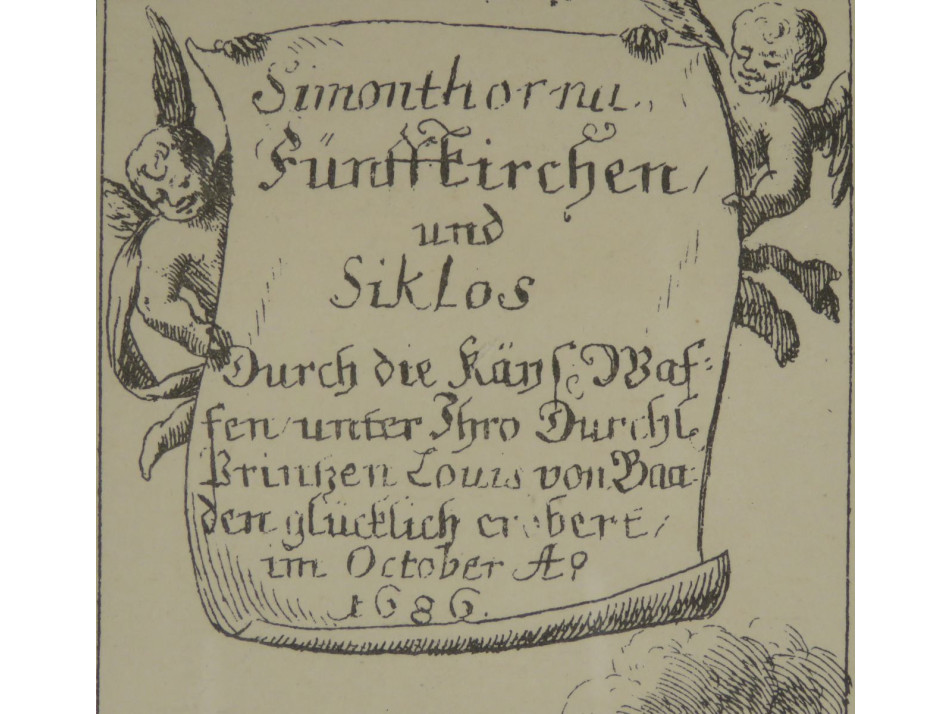 Simonthorna.,
Fünffkirchen,
und
Siklos
Durch die Käyſ. Waf-
fen unter Ihro Durchl.
Printzen Louis von Baa-
den glücklich erobert,
im October Aº
1686.